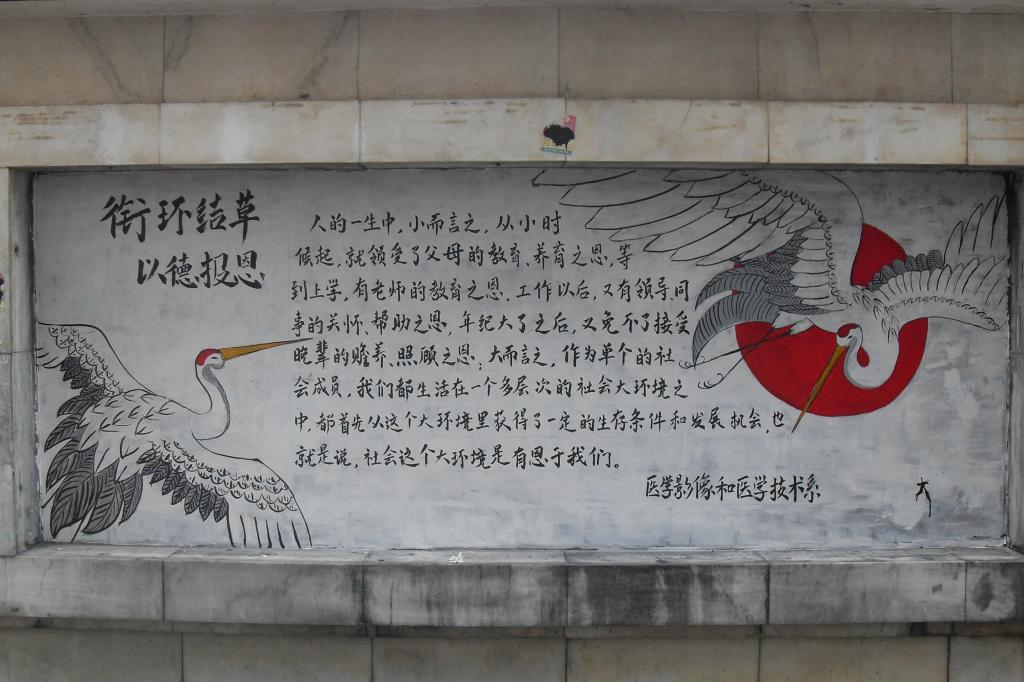 衔环结草
以德报恩
人的一生中,小而言之,从小时
候起,就领受了父母的教育、养育之恩,等
到上学,有老师的教育之恩,工作以后,又有领导、同
事的关怀、帮助之恩,年纪大了之后,又免不了接受
晚辈的赡养、照顾之恩;大而言之,作为单个的社
会成员,我们都生活在一个多层次的社会大环境之
中,都首先从这个大环境里获得了一定的生存条件和发展机会,也
就是说,社会这个大环境是有恩于我们。
医学影像和医学技术系